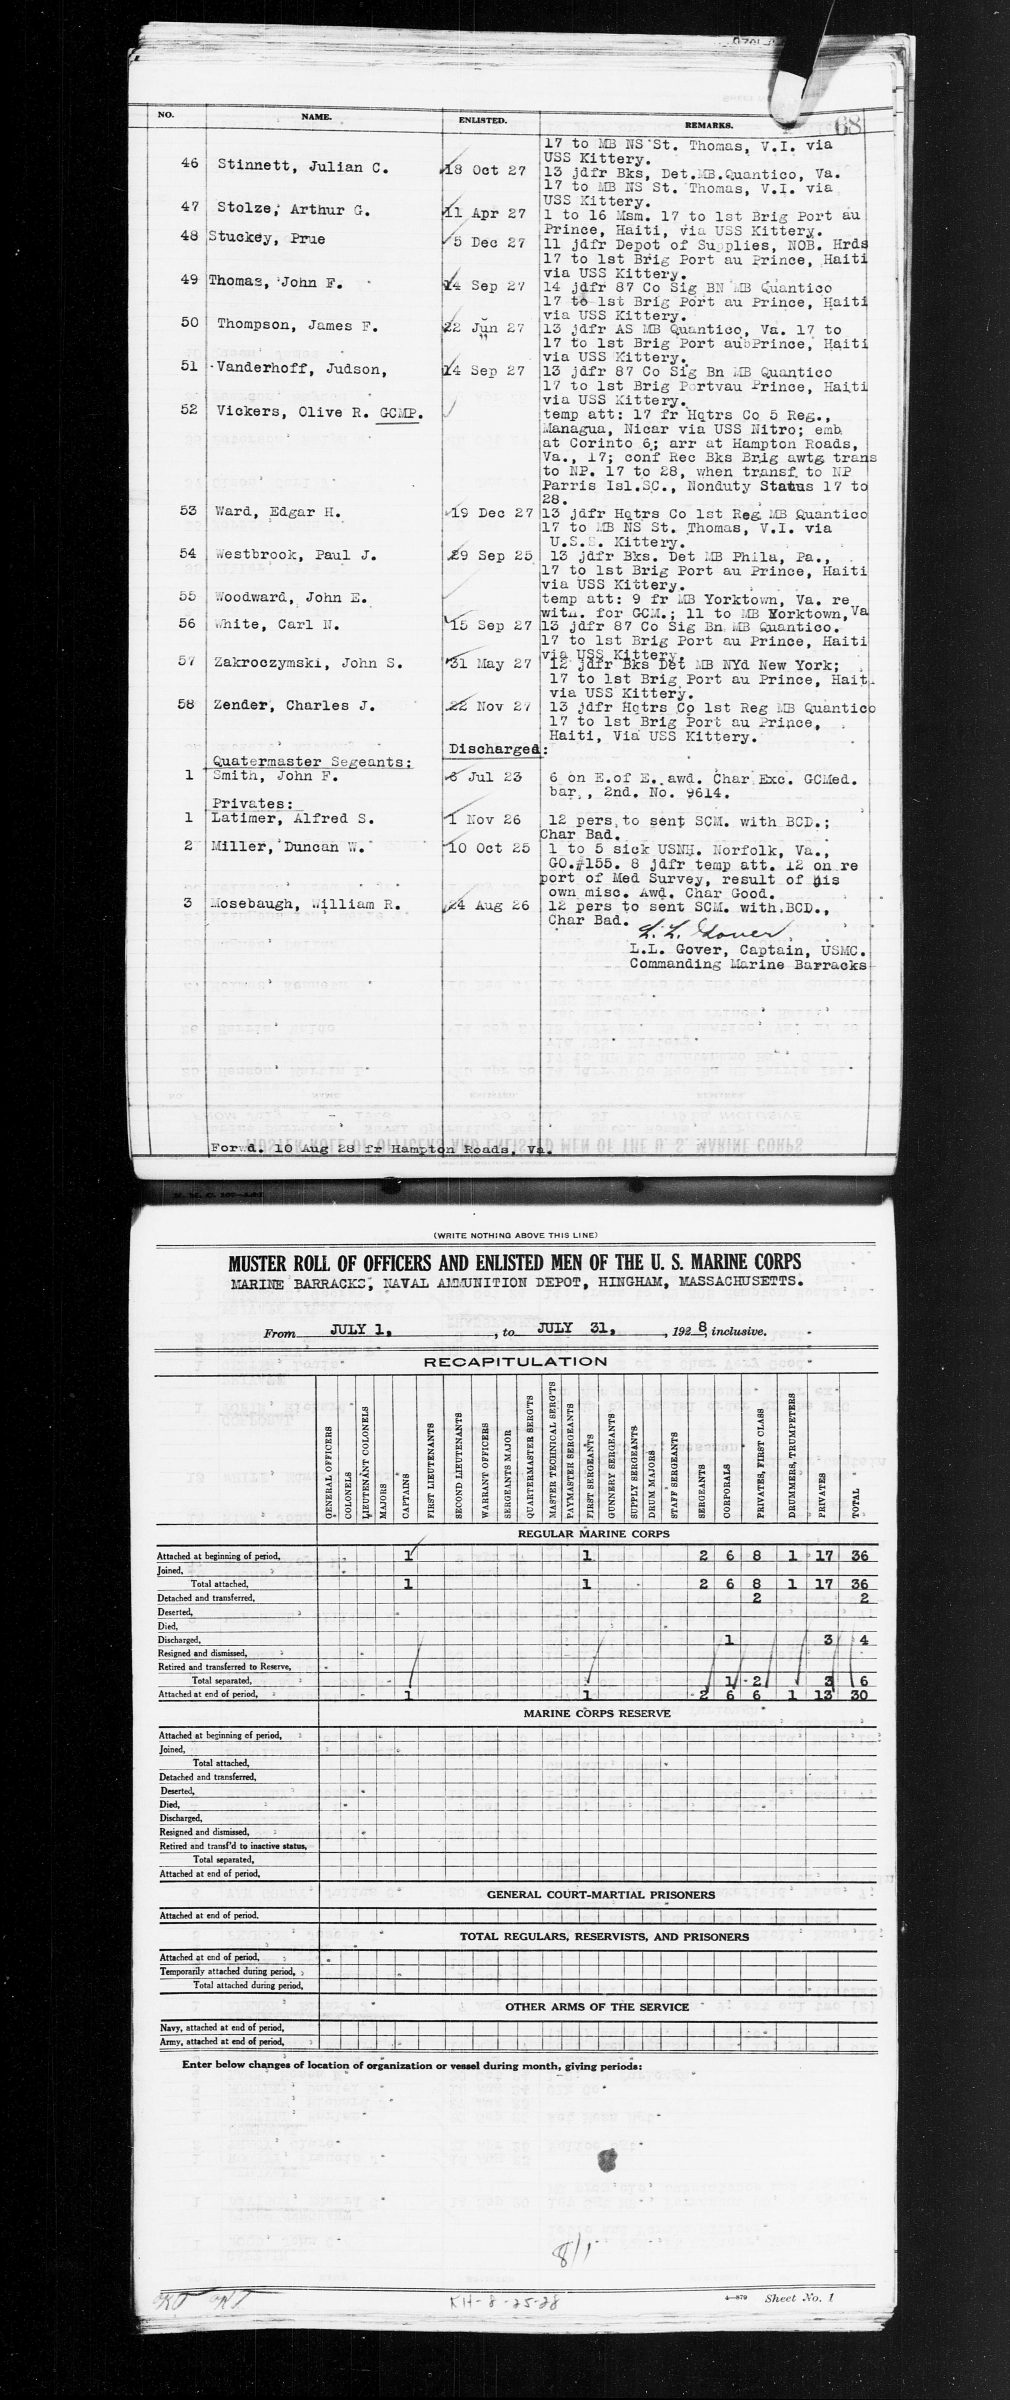 NO. NAME. ENLISTED. REMARKS. 68
17 to MB NS St. Thomas, V.I. via
USS Kittery.
46 Stinnett, Julian C. 18 Oct 27 13 jdfr Bks, Det.MB.Quantico, Va.
17 to MB NS St. Thomas, V.I. via
USS Kittery.
47 Stolze, Arthur G. 11 Apr 27 1 to 16 Msm. 17 to 1st Brig Port au
Prince, Haiti, via USS Kittery.
48 Stuckey, Prue 5 Dec 27 11 jdfr Depot of Supplies, NOB. Hrds
17 to 1st Brig Port au Prince, Haiti
via USS Kittery.
49 Thomas, John F. 14 Sep 27 14 jdfr 87 Co Sig BN MB Quantico
17 to 1st Brig Port au Prince, Haiti
via USS Kittery.
50 Thompson, James F. 22 Jun 27 13 jdfr AS MB Quantico, Va. 17 to
17 to 1st Brig Port aubPrince, Haiti
via USS Kittery.
51 Vanderhoff, Judson, 14 Sep 27 13 jdfr 87 Co Sig Bn MB Quantico
17 to 1st Brig Portvau Prince, Haiti
via USS Kittery.
52 Vickers, Olive R. GCMP. temp att: 17 fr Hqtrs Co 5 Reg.,
Managua, Nicar via USS Nitro; emb
at Corinto 6; arr at Hampton Roads,
Va., 17; conf Rec Bks Brig awtg trans
to NP. 17 to 28, when transf to NP
Parris Isl.SC., Nonduty Status 17 to
28.
53 Ward, Edgar H. 19 Dec 27 13 jdfr Hqtrs Co 1st Reg MB Quantico
17 to MB NS St. Thomas, V.I. via
U.S.S. Kittery.
54 Westbrook, Paul J. 29 Sep 25 13 jdfr Bks. Det MB Phila, Pa.,
17 to 1st Brig Port au Prince, Haiti
via USS Kittery.
55 Woodward, John E. temp att: 9 fr MB Yorktown, Va. re
with. for GCM.; 11 to MB Yorktown, Va
56 White, Carl N. 15 Sep 27 13 jdfr 87 Co Sig Bn MB Quantico.
17 to 1st Brig Port au Prince, Haiti
via USS Kittery.
57 Zakroczymski, John S. 31 May 27 12 jdfr Bks Det MB NYd New York;
17 to 1st Brig Port au Prince, Hait
via USS Kittery.
58 Zender, Charles J. 22 Nov 27 13 jdfr Hqtrs Co 1st Reg MB Quantico
17 to 1st Brig Port au Prince,
Haiti, Via USS Kittery.
Discharged:
Quatermaster Segeants:
1 Smith, John F. 6 Jul 23 6 on E.of E. awd. Char Exc. GCMed.
bar., 2nd. No. 9614.
Privates:
1 Latimer, Alfred S. 1 Nov 26 12 pers to sent SCM. with BCD.;
Char Bad.
2 Miller, Duncan W. 10 Oct 25 1 to 5 sick USNH. Norfolk, Va.,
GO.#155. 8 jdfr temp att. 12 on re
port of Med Survey, result of his
own misc. Awd. Char Good.
3 Mosebaugh, William R. 24 Aug 26 12 pers to sent SCM. with.BCD.,
Char Bad.
L. L. Gover
L.L. Gover, Captain, USMC.
Commanding Marine Barracks
Forwd. 10 Aug 28 fr Hampton Roads, Va.
(WRITE NOTHING ABOVE THIS LINE)
MUSTER ROLL OF OFFICERS AND ENLISTED MEN OF THE U. S. MARINE CORPS
MARINE BARRACKS, NAVAL AMMUNITION DEPOT, HINGHAM, MASSACHUSETTS.
From JULY 1, , to JULY 31, , 1928, inclusive.
RECAPITULATION
GENERAL OFFICERS
COLONELS
LIEUTENANT COLONELS
MAJORS
CAPTAINS
FIRST LIEUTENANTS
SECOND LIEUTENANTS
WARRANT OFFICERS
SERGEANTS MAJOR
QUARTERMASTER SERG'TS
MASTER TECHNICAL SERG'TS
PAYMASTER SERGEANTS
FIRST SERGEANTS
GUNNERY SERGEANTS
SUPPLY SERGEANTS
DRUM MAJORS
STAFF SERGEANTS
SERGEANTS
CORPORALS
PRIVATES, FIRST CLASS
DRUMMERS, TRUMPETERS
PRIVATES
TOTAL
REGULAR MARINE CORPS
Attached at beginning of period, 1 1 2 6 8 1 17 36
Joined,
Total attached, 1 1 2 6 8 1 17 36
Detached and transferred, 2 2
Deserted,
Died,
Discharged, 1 3 4
Resigned and dismissed,
Retired and transferred to Reserve,
Total separated, 1 2 3 6
Attached at end of period, 1 1 2 6 6 1 13 30
MARINE CORPS RESERVE
Attached at beginning of period,
Joined,
Total attached,
Detached and transferred,
Deserted,
Died,
Discharged,
Resigned and dismissed,
Retired and transf'd to inactive status,
Total separated,
Attached at end of period,
GENERAL COURT-MARTIAL PRISONERS
Attached at end of period.
TOTAL REGULARS, RESERVISTS, AND PRISONERS
Attached at end of period,
Temporarily attached during period,
Total attached during period,
OTHER ARMS OF THE SERVICE
Navy, attached at end of period,
Army, attached at end of period,
Enter below changes of location of organization or vessel during month, giving periods:
8/1
KH-8-25-28
4—879 Sheet No. 1